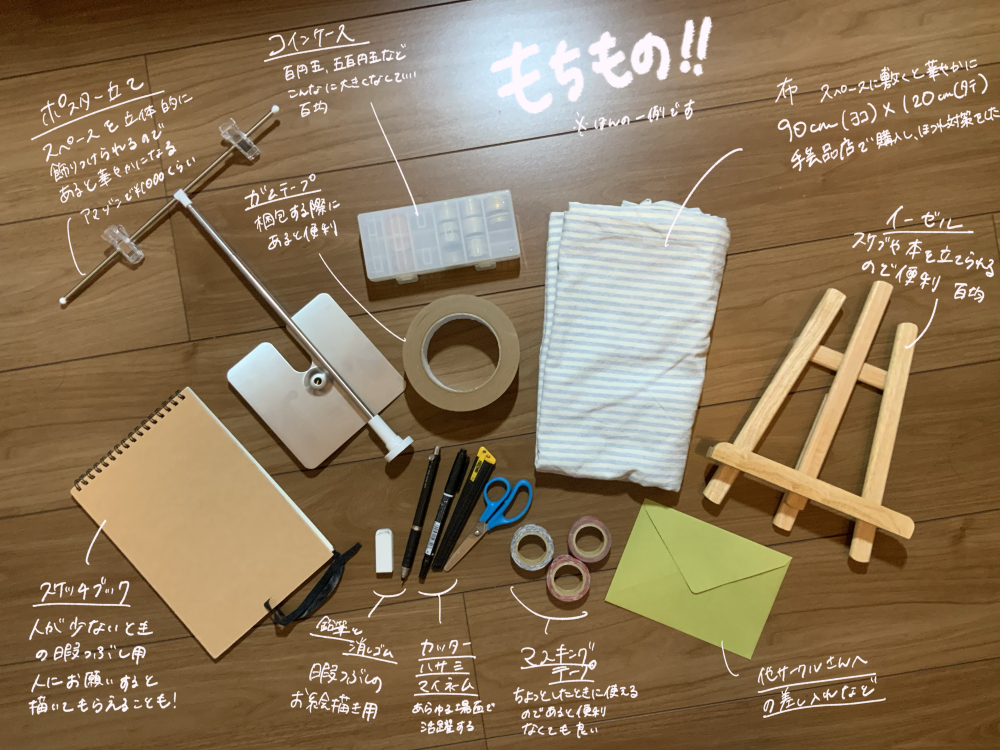 もちもの!!
※ほんの一例です
ポスター立て
スペースを立体的に
飾りつけられるので
あると華やかになる
アマゾンで¥1000くらい
コインケース
百円玉、五百円玉など
こんなに大きくなくていい
百均
ガムテープ
梱包する際に
あると便利
布 スペースに敷くと華やかに
90cm(ヨコ)×120cm(タテ)
手芸品店で購入し、ほつれ対策をした
イーゼル
スケブや本を立てられる
ので便利 百均
スケッチブック
人が少ないとき
の暇つぶし用
人にお願いすると
描いてもらえることも!
鉛筆と
消しゴム
暇つぶしの
お絵描き用
カッター
ハサミ
マイネーム
あらゆる場面で
活躍する
マスキング
テープ
ちょっとしたときに使える
のであると便利
なくても良い
他サークルさんへ
の差し入れなど